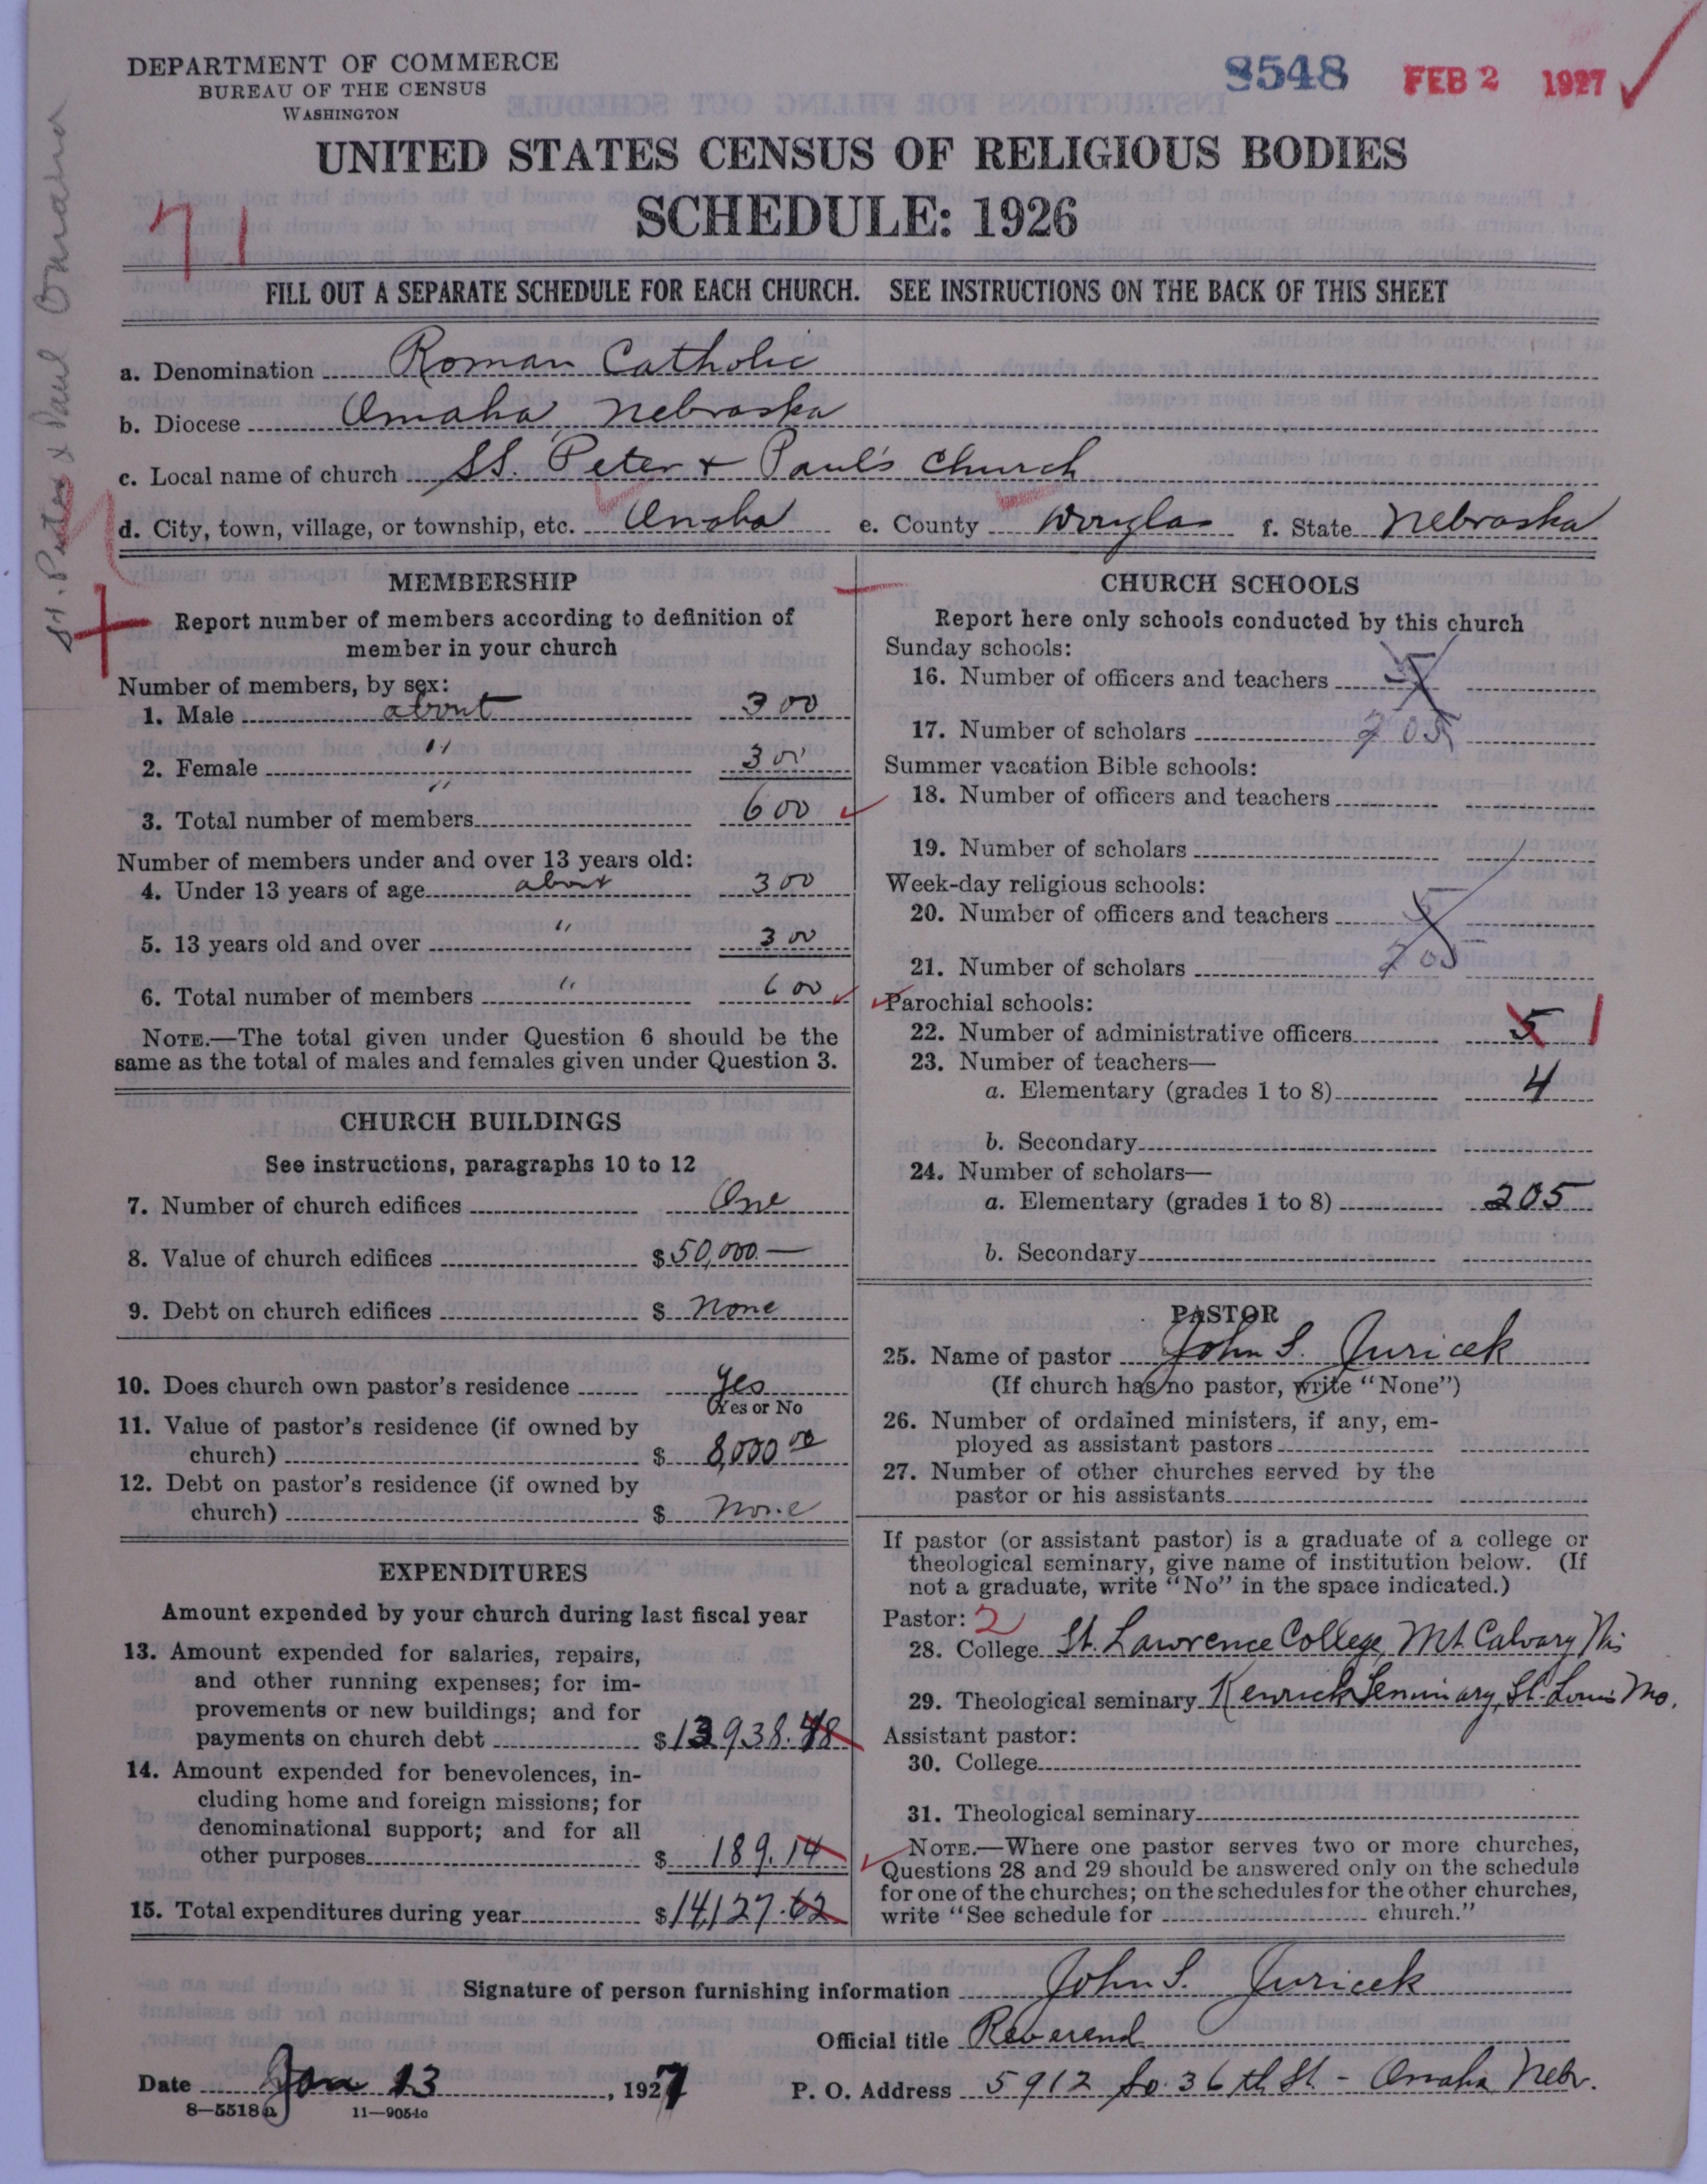 DEPARTMENT OF COMMERCE
BUREAU OF THE CENSUS
WASHINGTON
8548 FEB 2 1927
UNITED STATES CENSUS OF RELIGIOUS BODIES
SCHEDULE: 1926
71
FILL OUT A SEPARATE SCHEDULE FOR EACH CHURCH. SEE INSTRUCTIONS ON THE BACK OF THIS SHEET
St. Peter & Paul Omaha
a. Denomination Roman Catholic
b. Diocese Omaha, Nebraska
c. Local name of church SS. Peter + Paul's Church
d. City, town, village, or township, etc. Omaha e. County Douglas f. State Nebraska
MEMBERSHIP
Report number of members according to definition of
member in your church
Number of members, by sex:
1. Male about 300
2. Female " 300
3. Total number of members " 600
Number of members under and over 13 years old:
4. Under 13 years of age about 300
5. 13 years old and over " 300
6. Total number of members " 600
NOTE.—The total given under Question 6 should be the
same as the total of males and females given under Question 3.
CHURCH BUILDINGS
See instructions, paragraphs 10 to 12
7. Number of church edifices One
8. Value of church edifices $50,000.—
9. Debt on church edifices $ None
10. Does church own pastor's residence Yes
Yes or No
11. Value of pastor's residence (if owned by
church) $ 8,000 00
12. Debt on pastor's residence (if owned by
church) $ None
EXPENDITURES
Amount expended by your church during last fiscal year
13. Amount expended for salaries, repairs,
and other running expenses; for im-
provements or new buildings; and for
payments on church debt $13938.48
14. Amount expended for benevolences, in-
cluding home and foreign missions; for
denominational support; and for all
other purposes $ 189.14
15. Total expenditures during year $14,127.62
CHURCH SCHOOLS
Report here only schools conducted by this church
Sunday schools:
16. Number of officers and teachers 5
17. Number of scholars 205
Summer vacation Bible schools:
18. Number of officers and teachers
19. Number of scholars
Week-day religious schools:
20. Number of officers and teachers 5
21. Number of scholars 205
Parochial schools:
22. Number of administrative officers 5 1
23. Number of teachers—
a. Elementary (grades 1 to 8) 4
b. Secondary
24. Number of scholars—
a. Elementary (grades 1 to 8) 205
b. Secondary
PASTOR
25. Name of pastor John S. Juricek
(If church has no pastor, write "None")
26. Number of ordained ministers, if any, em-
ployed as assistant pastors
27. Number of other churches served by the
pastor or his assistants
If pastor (or assistant pastor) is a graduate of a college or
theological seminary, give name of institution below. (If
not a graduate, write "No" in the space indicated.)
Pastor: 2
28. College St. Lawrence College, Mt. Calvary Wis
29. Theological seminary Kenrick Seminary, St. Louis Mo.
Assistant pastor:
30. College
31. Theological seminary
NOTE.—Where one pastor serves two or more churches,
Questions 28 and 29 should be answered only on the schedule
for one of the churches; on the schedules for the other churches,
write "See schedule for church."
Signature of person furnishing information John S. Juricek
Official title Reverend
Date Jan 13, 1927 P. O. Address 5912 So. 36th St - Omaha Nebr.
8—5518a 11—9054c